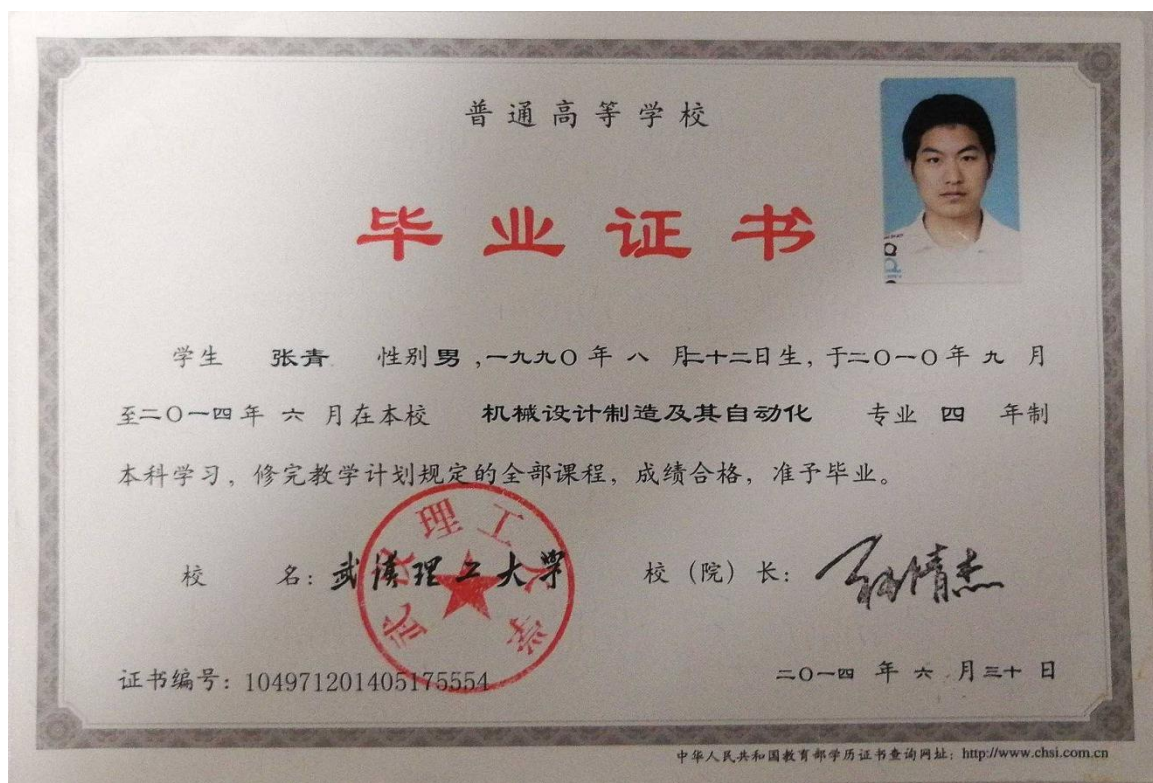 普通高等学校
毕业证书
学生 张青 性别男,一九九〇年 八 月二十二日生,于二〇一〇年 九 月
至二〇一四年 六 月在本校 机械设计制造及其自动化 专业 四 年制
本科学习,修完教学计划规定的全部课程,成绩合格,准予毕业。
武汉理工大学
校 名:武汉理工大学 校(院)长:
证书编号:104971201405175554 二〇一四 年 六 月三十 日
中华人民共和国教育部学历证书查询网址:http://www.chsi.com.cn